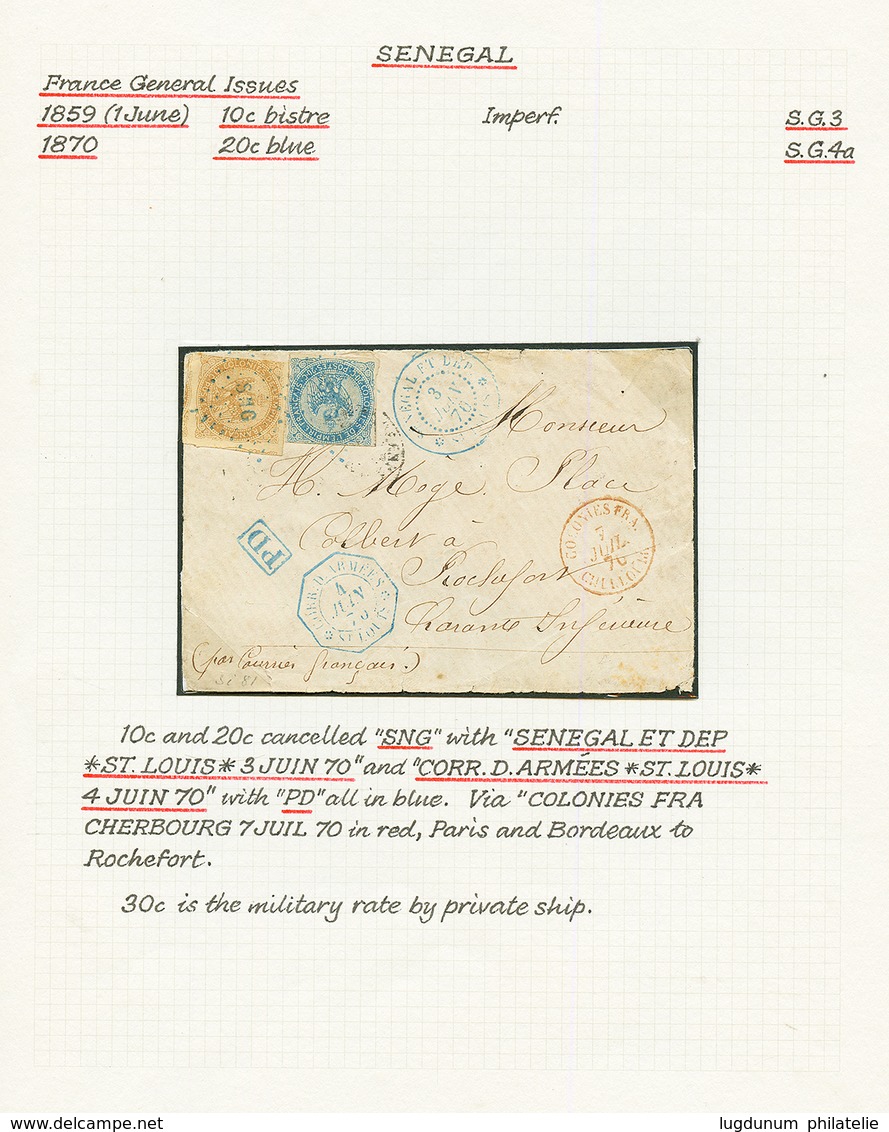 SENEGAL
France General Issues
1859 (1 June) 10c bistre Imperf. S.G.3
1870 20c blue S.G.4a
SNG
NEGAL ET DEP
3
JUIN
70
* ST LOUIS *
Monsieur
H. Mogé. Place
Colbert à
Rochefort
Charente Inférieure
(par Courrier français.)
PD
CORR. D. ARMÉES
4
JUIN
70
* ST LOUIS *
COLONIES FRA.
7
JUIL.
70
CHERBOURG
10c and 20c cancelled "SNG" with "SENEGAL ET DEP
*ST. LOUIS* 3 JUIN 70" and "CORR. D. ARMÉES *ST. LOUIS*
4 JUIN 70" with "PD" all in blue. Via "COLONIES FRA
CHERBOURG 7 JUIL 70 in red, Paris and Bordeaux to
Rochefort.
30c is the military rate by private ship.
www.delcampe.net lugdunum philatelie